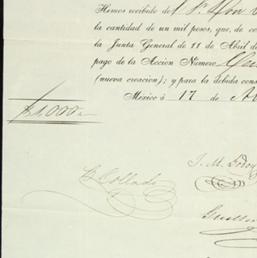 Hemos recibido del Sr. Don
la cantidad de un mil pesos, que, de co
la Junta General de 11 de Abril d
pago de la Accion Número
(nueva creacion); y para la debida cons
México á 17 de
$1,000
C. Collado
J. M.
Guiller